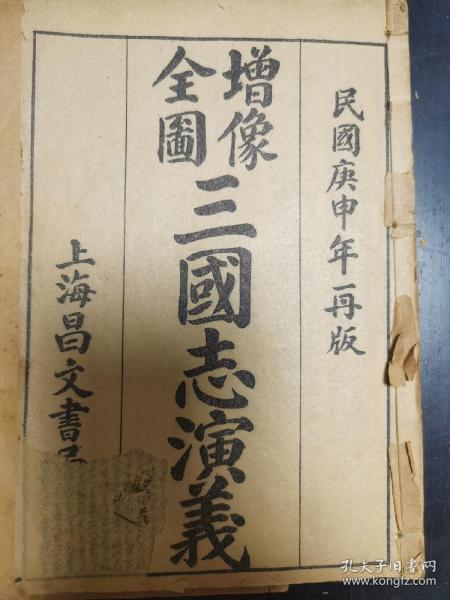 民國庚申年再版
增像
全圖
三國志演義
上海昌文書
孔夫子旧书网
www.kongfz.com